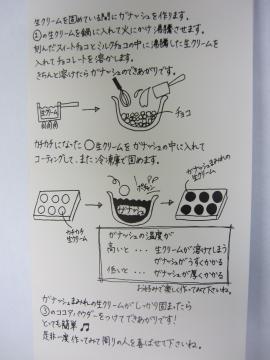 生クリームを固めている間にガナッシュを作ります。
②の生クリームを鍋に入れて火にかけ沸騰させます。
刻んだスイートチョコとミルクチョコの中に沸騰した生クリームを
入れてチョコレートを溶かします。
きちんと溶けたらガナッシュのできあがりです。
生クリーム
チョコ
カチカチになった○生クリームをガナッシュの中に入れて
コーティングして、また冷凍庫で固めます。
ガナッシュまみれの
生クリーム
ポチャン
ガナッシュ
カチカチ
生クリーム
ガナッシュの温度が
高いと・・・生クリームが溶けてしまう
ガナッシュがうすくかかる
低いと・・・ガナッシュが厚くかかる
お好みで楽しく作ってみて下さいね。
ガナッシュまみれの生クリームがしっかり固まったら
③のココアパウダーをつけてできあがりです!
とっても簡単♫
是非一度作ってみて周りの人を喜ばせて下さいね。